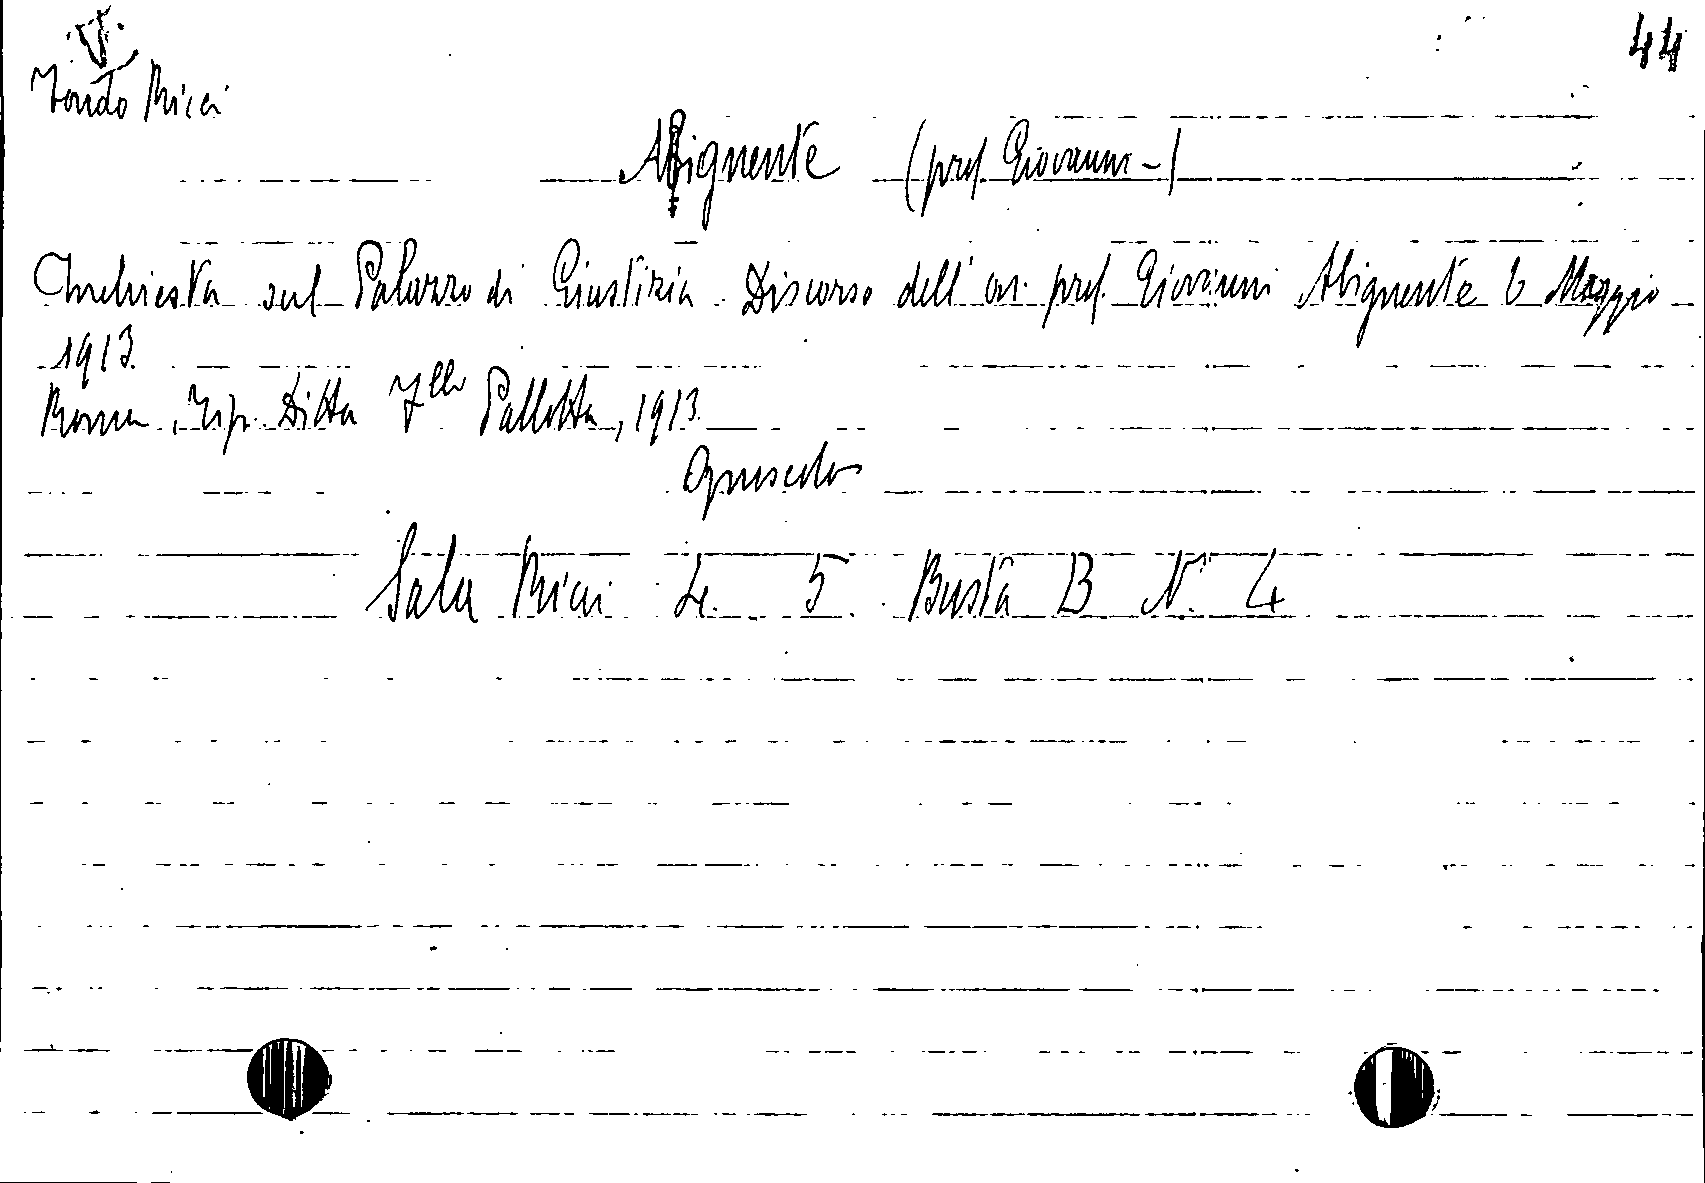 V.
44
Fondo Ricci
Abignente (prof. Giovanni -)
Inchiesta sul Palazzo di Giustizia. Discorso dell'on. prof. Giovanni Abignente 6 Maggio
1913.
Roma, Tip. Ditta F.lli Pallotta, 1913.
Opuscolo
Sala Ricci L. 5. Busta B N. 4